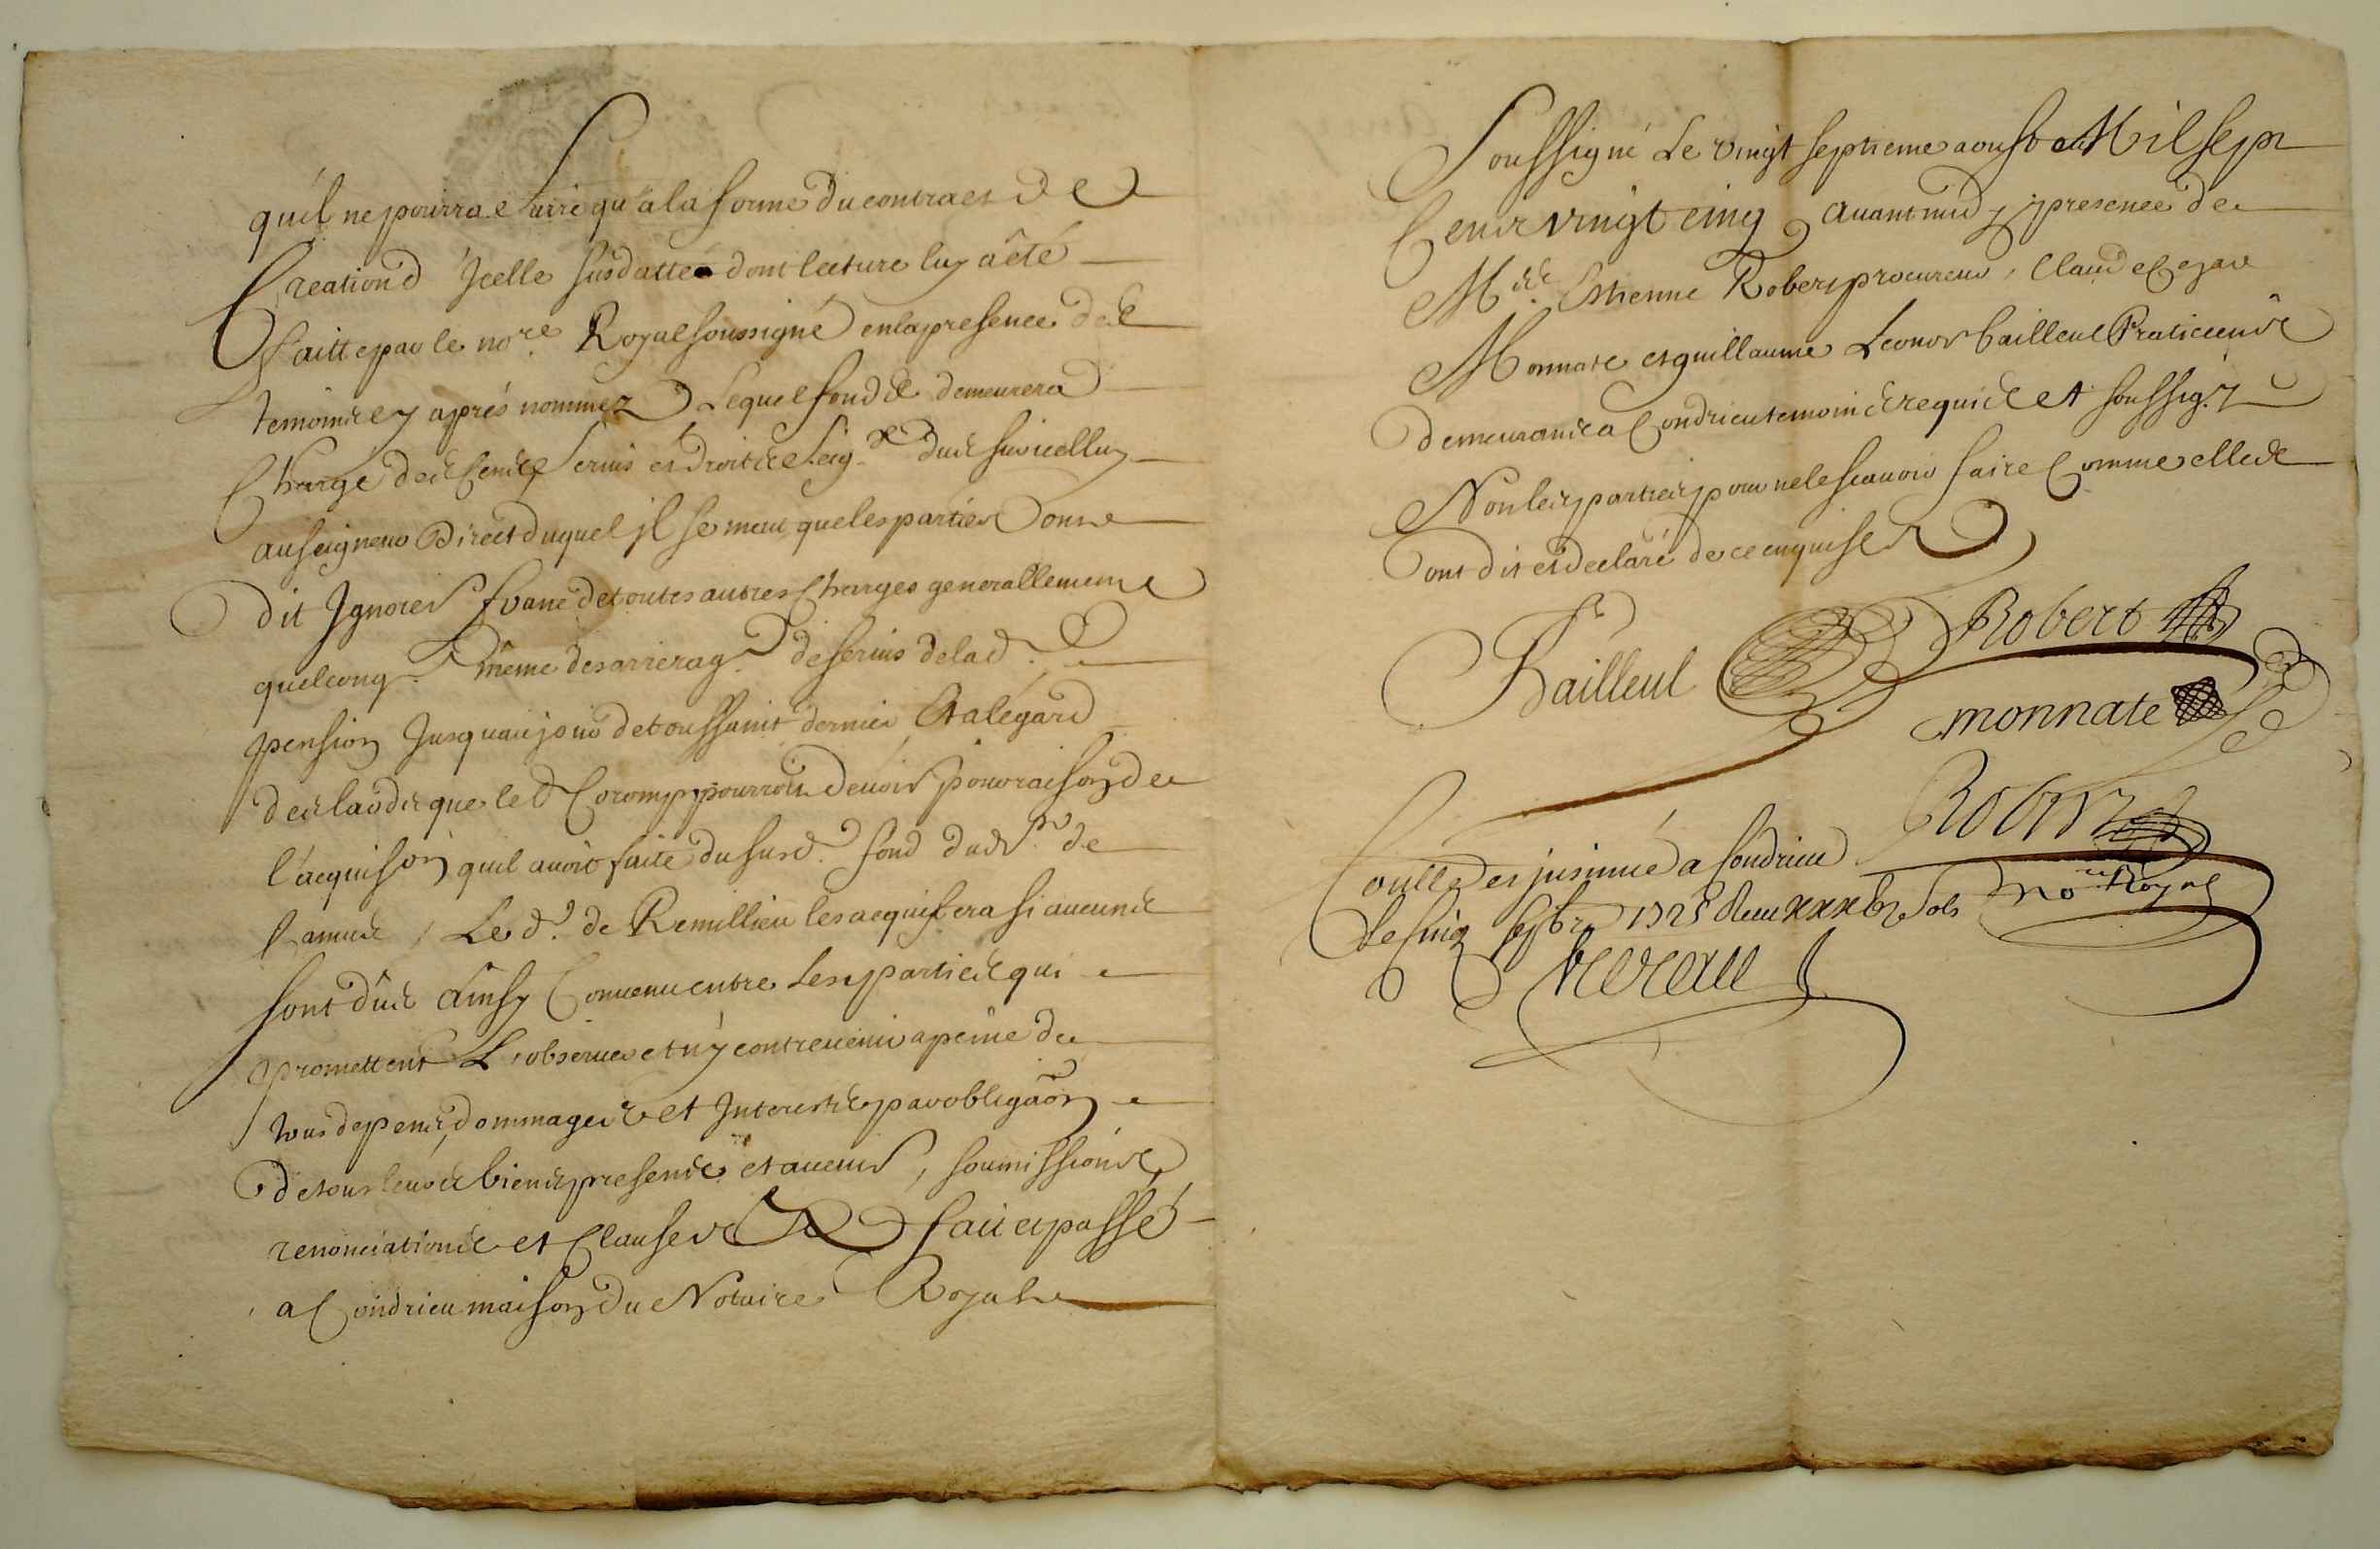 quil ne pourra faire qu'a la forme du contract de
Creation d'Jcelle susdattée dont lecture luy a été
faitte par le no.re Royal soussigné en la presence des
temoins cy aprés nommez Lequel fond demeurera
Chargé des Cens servis et droits seig.x dus sur icelluy
au seigneur Direct duquel jl se meut que les parties ont
dit Jgnorer franc de toutes autres Charges generallement
quelconq. même des arrerag. de servis de la d.
pension Jusquau jour de toussaint dernier Et a légard
des laods que le d. Coromp pourroit devoir pour raison de
l'acquison quil avoit faite du susd. fond dud. sr. de
Camus, Le d. sr. de Remillieu les acquitera si aucuns
sont dûs Ainsy Convenu entre Les parties qui
promettent L'observer et n'y contrevenir a peine de
tous depens, dommages et Jnterests par obligaõn
de tous leurs biens presens et avenir, soumissions,
renonciations et Clauses fait et passé
a Condrieu maison du Notaire Royal
Soussigné Le vingt septieme aoust Mil sept
Cent vingt cinq avant midy presence de
M.es Estienne Robert procureur, Claude Cezar
Monnate et guillaume Leonor bailleul Praticiens
demeurants a Condrieu temoins requis et soussig.z
Non les parties pour ne le scavoir faire Comme elles
ont dit et declaré de ce enquises
Bailleul
Robert
monnate
Robert
no.re Royal
Coullé et jnsinué a Condrieu
Le Cinq sepbre 1725 Receu sols